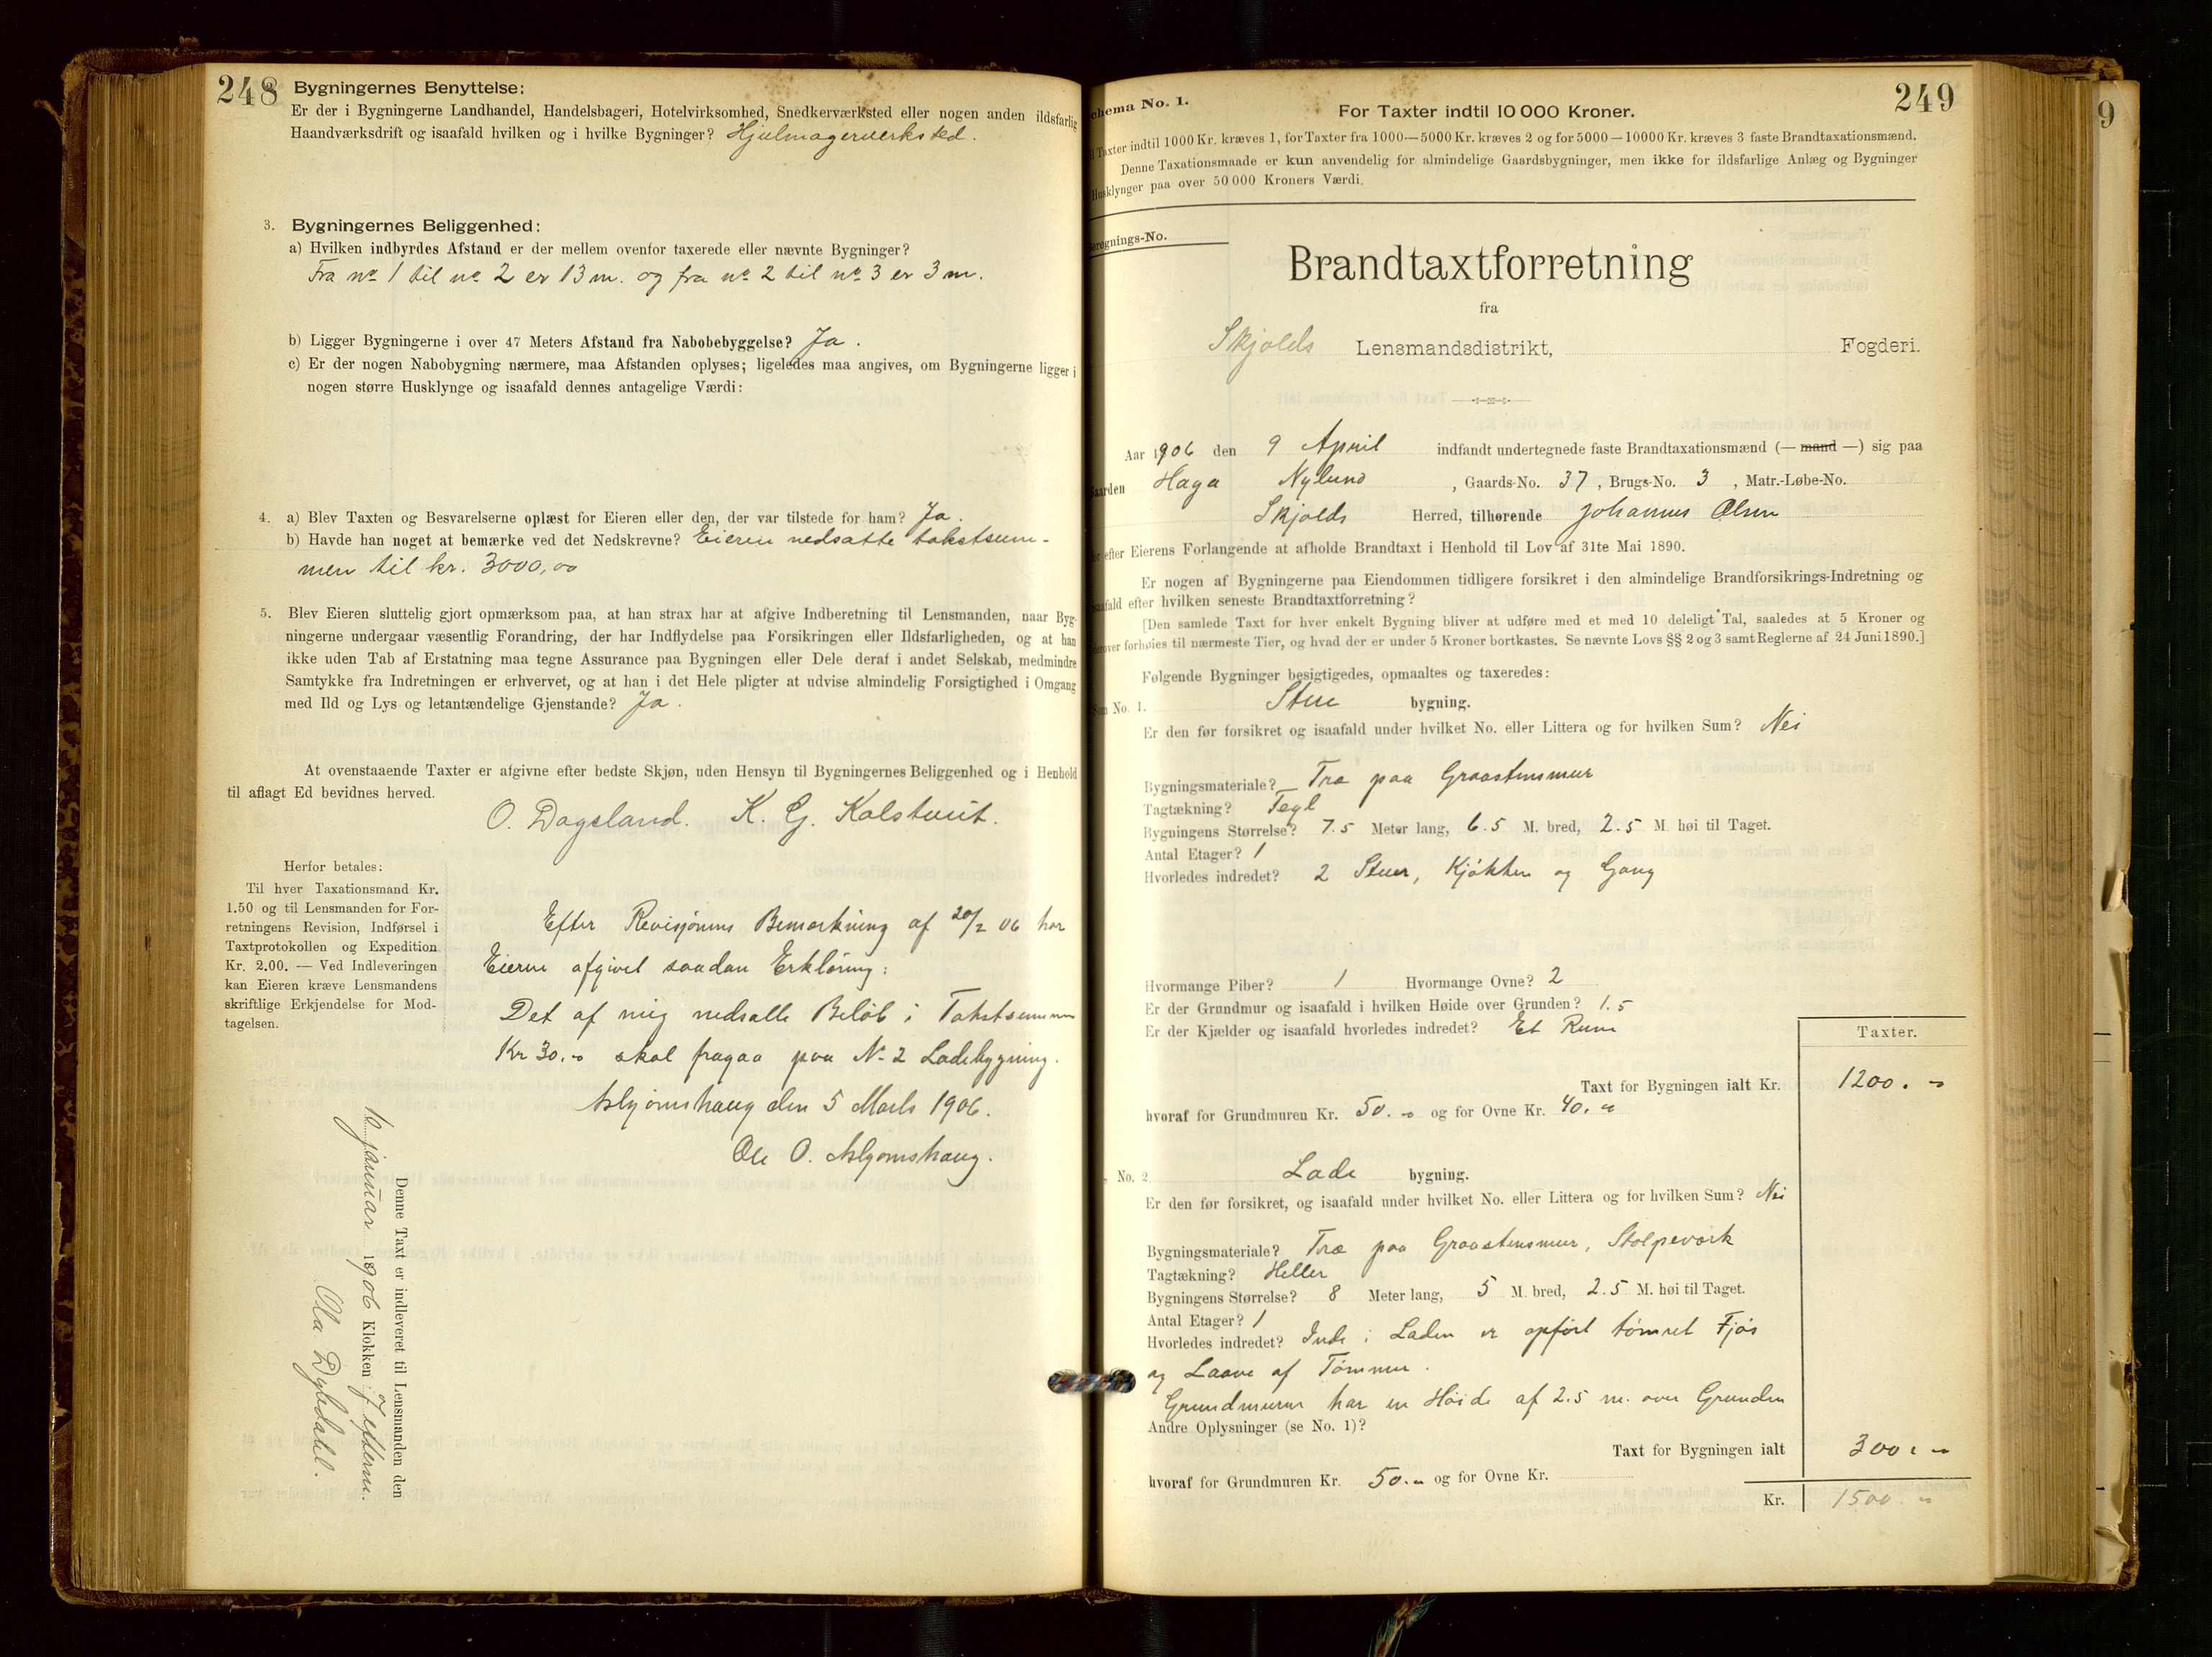 248
Bygningernes Benyttelse:
Er der i Bygningerne Landhandel, Handelsbageri, Hotelvirksomhed, Snedkerværksted eller nogen anden ildsfarlig
Haandværksdrift og isaafald hvilken og i hvilke Bygninger? Hjulmagerverksted.
3. Bygningernes Beliggenhed:
a) Hvilken indbyrdes Afstand er der mellem ovenfor taxerede eller nævnte Bygninger?
Fra no 1 til no 2 er 13 m. og fra no 2 til no 3 er 3 m.
b) Ligger Bygningerne i over 47 Meters Afstand fra Nabobebyggelse? Ja.
c) Er der nogen Nabobygning nærmere, maa Afstanden oplyses; ligeledes maa angives, om Bygningerne ligger i
nogen større Husklynge og isaafald dennes antagelige Værdi:
4. a) Blev Taxten og Besvarelserne oplæst for Eieren eller den, der var tilstede for ham? Ja.
b) Havde han noget at bemærke ved det Nedskrevne? Eieren nedsatte takstsum-
men til kr. 3000,00
5. Blev Eieren sluttelig gjort opmærksom paa, at han strax har at afgive Indberetning til Lensmanden, naar Byg-
ningerne undergaar væsentlig Forandring, der har Indflydelse paa Forsikringen eller Ildsfarligheden, og at han
ikke uden Tab af Erstatning maa tegne Assurance paa Bygningen eller Dele deraf i andet Selskab, medmindre
Samtykke fra Indretningen er erhvervet, og at han i det Hele pligter at udvise almindelig Forsigtighed i Omgang
med Ild og Lys og letantændelige Gjenstande? Ja.
At ovenstaaende Taxter er afgivne efter bedste Skjøn, uden Hensyn til Bygningernes Beliggenhed og i Henhold
til aflagt Ed bevidnes herved.
O. Dagsland. K. G. Kolstveit.
Herfor betales:
Til hver Taxationsmand Kr.
1.50 og til Lensmanden for For-
retningens Revision, Indførsel i
Taxtprotokollen og Expedition
Kr. 2.00. — Ved Indleveringen
kan Eieren kræve Lensmandens
skriftlige Erkjendelse for Mod-
tagelsen.
Efter Revisjonens Bemærkning af 20/2 06 har
Eieren afgivet saadan Erklæring:
Det af mig nedsatte Beløb i Takstsummen
Kr 30.- skal fragaa paa No 2 Ladebygning.
den 5 Marts 1906.
Ole O.
Denne Taxt er indleveret til Lensmanden den
januar 1906 Klokken 7 efterm.
Ola Dybdahl.
249
Schema No. 1.
For Taxter indtil 10 000 Kroner.
Taxter indtil 1000 Kr. kræves 1, for Taxter fra 1000—5000 Kr. kræves 2 og for 5000—10000 Kr. kræves 3 faste Brandtaxationsmænd.
Denne Taxationsmaade er kun anvendelig for almindelige Gaardsbygninger, men ikke for ildsfarlige Anlæg og Bygninger
Husklynger paa over 50 000 Kroners Værdi.
Beregnings-No.
Brandtaxtforretning
fra
Skjolds Lensmandsdistrikt, Fogderi.
Aar 1906 den 9 April indfandt undertegnede faste Brandtaxationsmænd (— mand —) sig paa
Gaarden Haga Nylund, Gaards-No. 37, Brugs-No. 3, Matr.-Løbe-No.
Skjolds Herred, tilhørende Johannes Olsen
efter Eierens Forlangende at afholde Brandtaxt i Henhold til Lov af 31te Mai 1890.
Er nogen af Bygningerne paa Eiendommen tidligere forsikret i den almindelige Brandforsikrings-Indretning og
isaafald efter hvilken seneste Brandtaxtforretning?
[Den samlede Taxt for hver enkelt Bygning bliver at udføre med et med 10 deleligt Tal, saaledes at 5 Kroner og
derover forhøies til nærmeste Tier, og hvad der er under 5 Kroner bortkastes. Se nævnte Lovs §§ 2 og 3 samt Reglerne af 24 Juni 1890.]
Følgende Bygninger besigtigedes, opmaaltes og taxeredes:
Som No. 1. Stue bygning.
Er den før forsikret og isaafald under hvilket No. eller Littera og for hvilken Sum? Nei
Bygningsmateriale? Træ paa Graastensmur
Tagtækning? Tegl
Bygningens Størrelse? 7.5 Meter lang, 6.5 M. bred, 2.5 M. høi til Taget.
Antal Etager? 1
Hvorledes indredet? 2 Stuer, Kjøkken og Gang
Hvormange Piber? 1 Hvormange Ovne? 2
Er der Grundmur og isaafald i hvilken Høide over Grunden? 1.5
Er der Kjælder og isaafald hvorledes indredet? Et Rum
Taxter.
Taxt for Bygningen ialt Kr. 1200.-
hvoraf for Grundmuren Kr. 50.- og for Ovne Kr. 40.-
No. 2 Lade bygning.
Er den før forsikret, og isaafald under hvilket No. eller Littera og for hvilken Sum? Nei
Bygningsmateriale? Træ paa Graastensmur, Stolpeværk
Tagtækning? Heller
Bygningens Størrelse? 8 Meter lang, 5 M. bred, 2.5 M. høi til Taget.
Antal Etager? 1
Hvorledes indredet? Inde i Laden er opført tømret Fjøs
og Laave af Tømmer.
Grundmuren har en Høide af 2.5 m. over Grunden
Andre Oplysninger (se No. 1)?
Taxt for Bygningen ialt 300.-
hvoraf for Grundmuren Kr. 50.- og for Ovne Kr.
Kr. 1500.-
9